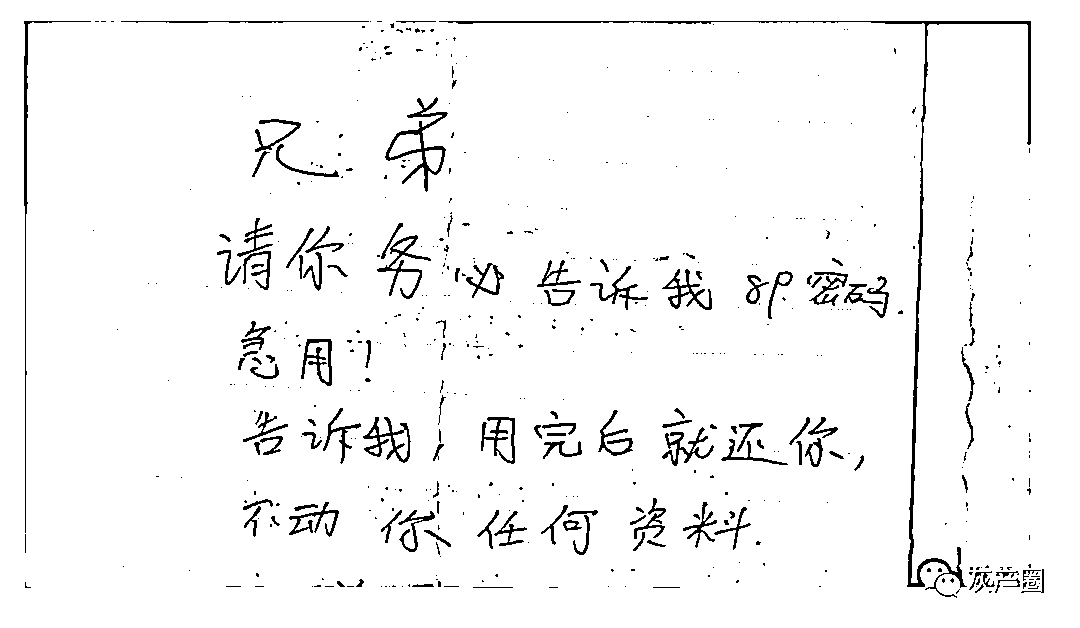 兄弟
请你务必告诉我SP密码.
急用!
告诉我,用完后就还你,
不动你任何资料.
灰产圈